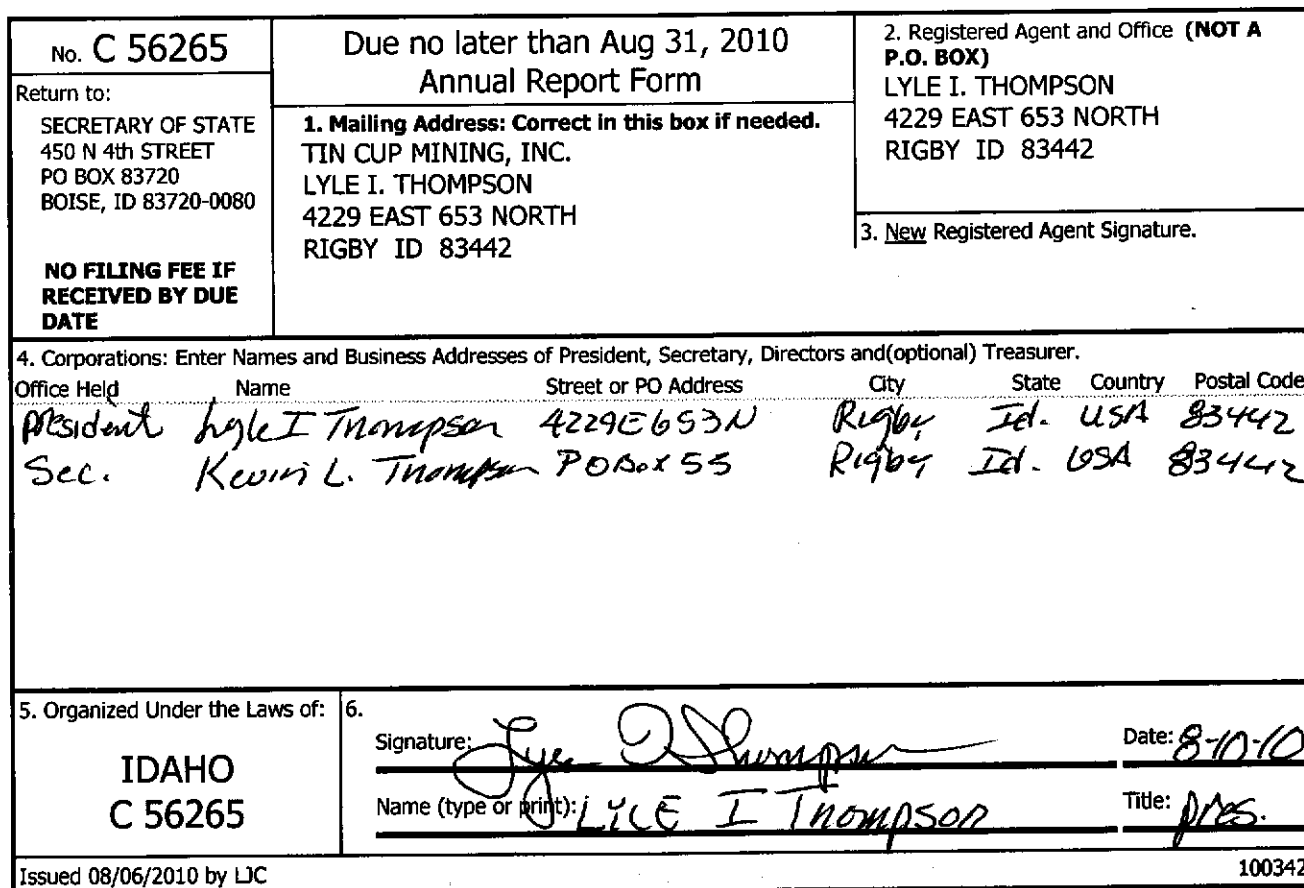 No. C 56265
Return to:
SECRETARY OF STATE
450 N 4th STREET
PO BOX 83720
BOISE, ID 83720-0080
NO FILING FEE IF
RECEIVED BY DUE
DATE
Due no later than Aug 31, 2010
Annual Report Form
1. Mailing Address: Correct in this box if needed.
TIN CUP MINING, INC.
LYLE I. THOMPSON
4229 EAST 653 NORTH
RIGBY ID 83442
2. Registered Agent and Office (NOT A
P.O. BOX)
LYLE I. THOMPSON
4229 EAST 653 NORTH
RIGBY ID 83442
3. New Registered Agent Signature.
4. Corporations: Enter Names and Business Addresses of President, Secretary, Directors and(optional) Treasurer.
Office Held Name Street or PO Address City State Country Postal Code
President Lyle I Thompson 4229E653N Rigby Id. USA 83442
Sec. Kevin L. Thompson PO Box 55 Rigby Id. USA 83442
5. Organized Under the Laws of:
IDAHO
C 56265
6.
Signature: Lyle I Thompson Date: 8-10-10
Name (type or print): LYLE I Thompson Title: pres.
Issued 08/06/2010 by LJC 100342